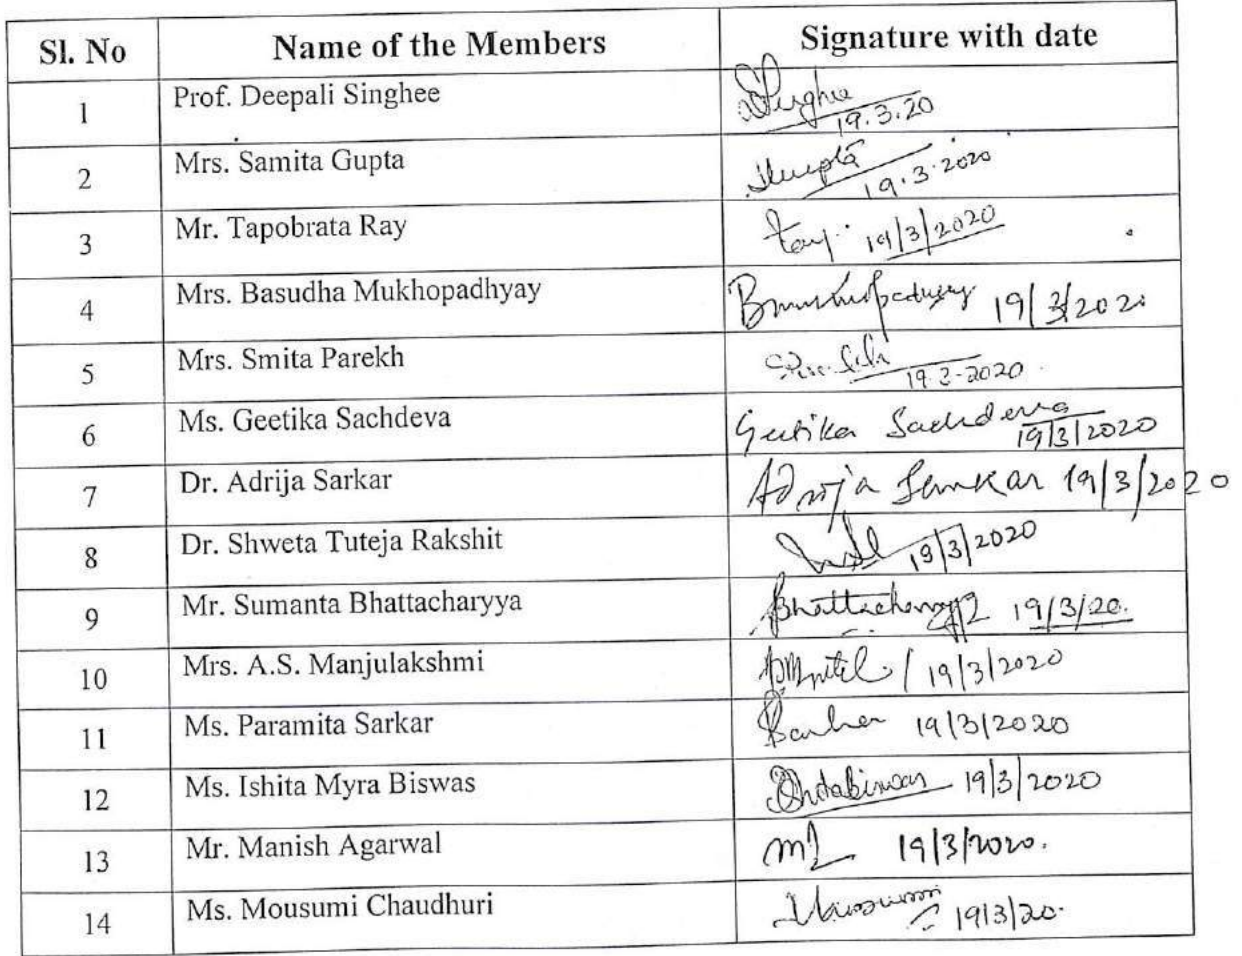 Sl. No Name of the Members Signature with date
1 Prof. Deepali Singhee 19.3.20
2 Mrs. Samita Gupta 19.3.2020
3 Mr. Tapobrata Ray 19/3/2020
4 Mrs. Basudha Mukhopadhyay Bmukhopadhyay 19/3/202
5 Mrs. Smita Parekh 19.3-2020
6 Ms. Geetika Sachdeva Geetika Sachdeva 19/3/2020
7 Dr. Adrija Sarkar Adrija Sarkar 19/3/2020
8 Dr. Shweta Tuteja Rakshit 19/3/2020
9 Mr. Sumanta Bhattacharyya Bhattacharyya 19/3/20.
10 Mrs. A.S. Manjulakshmi 19/3/2020
11 Ms. Paramita Sarkar 19/3/2020
12 Ms. Ishita Myra Biswas 19/3/2020
13 Mr. Manish Agarwal 19/3/2020.
14 Ms. Mousumi Chaudhuri 19/3/20.